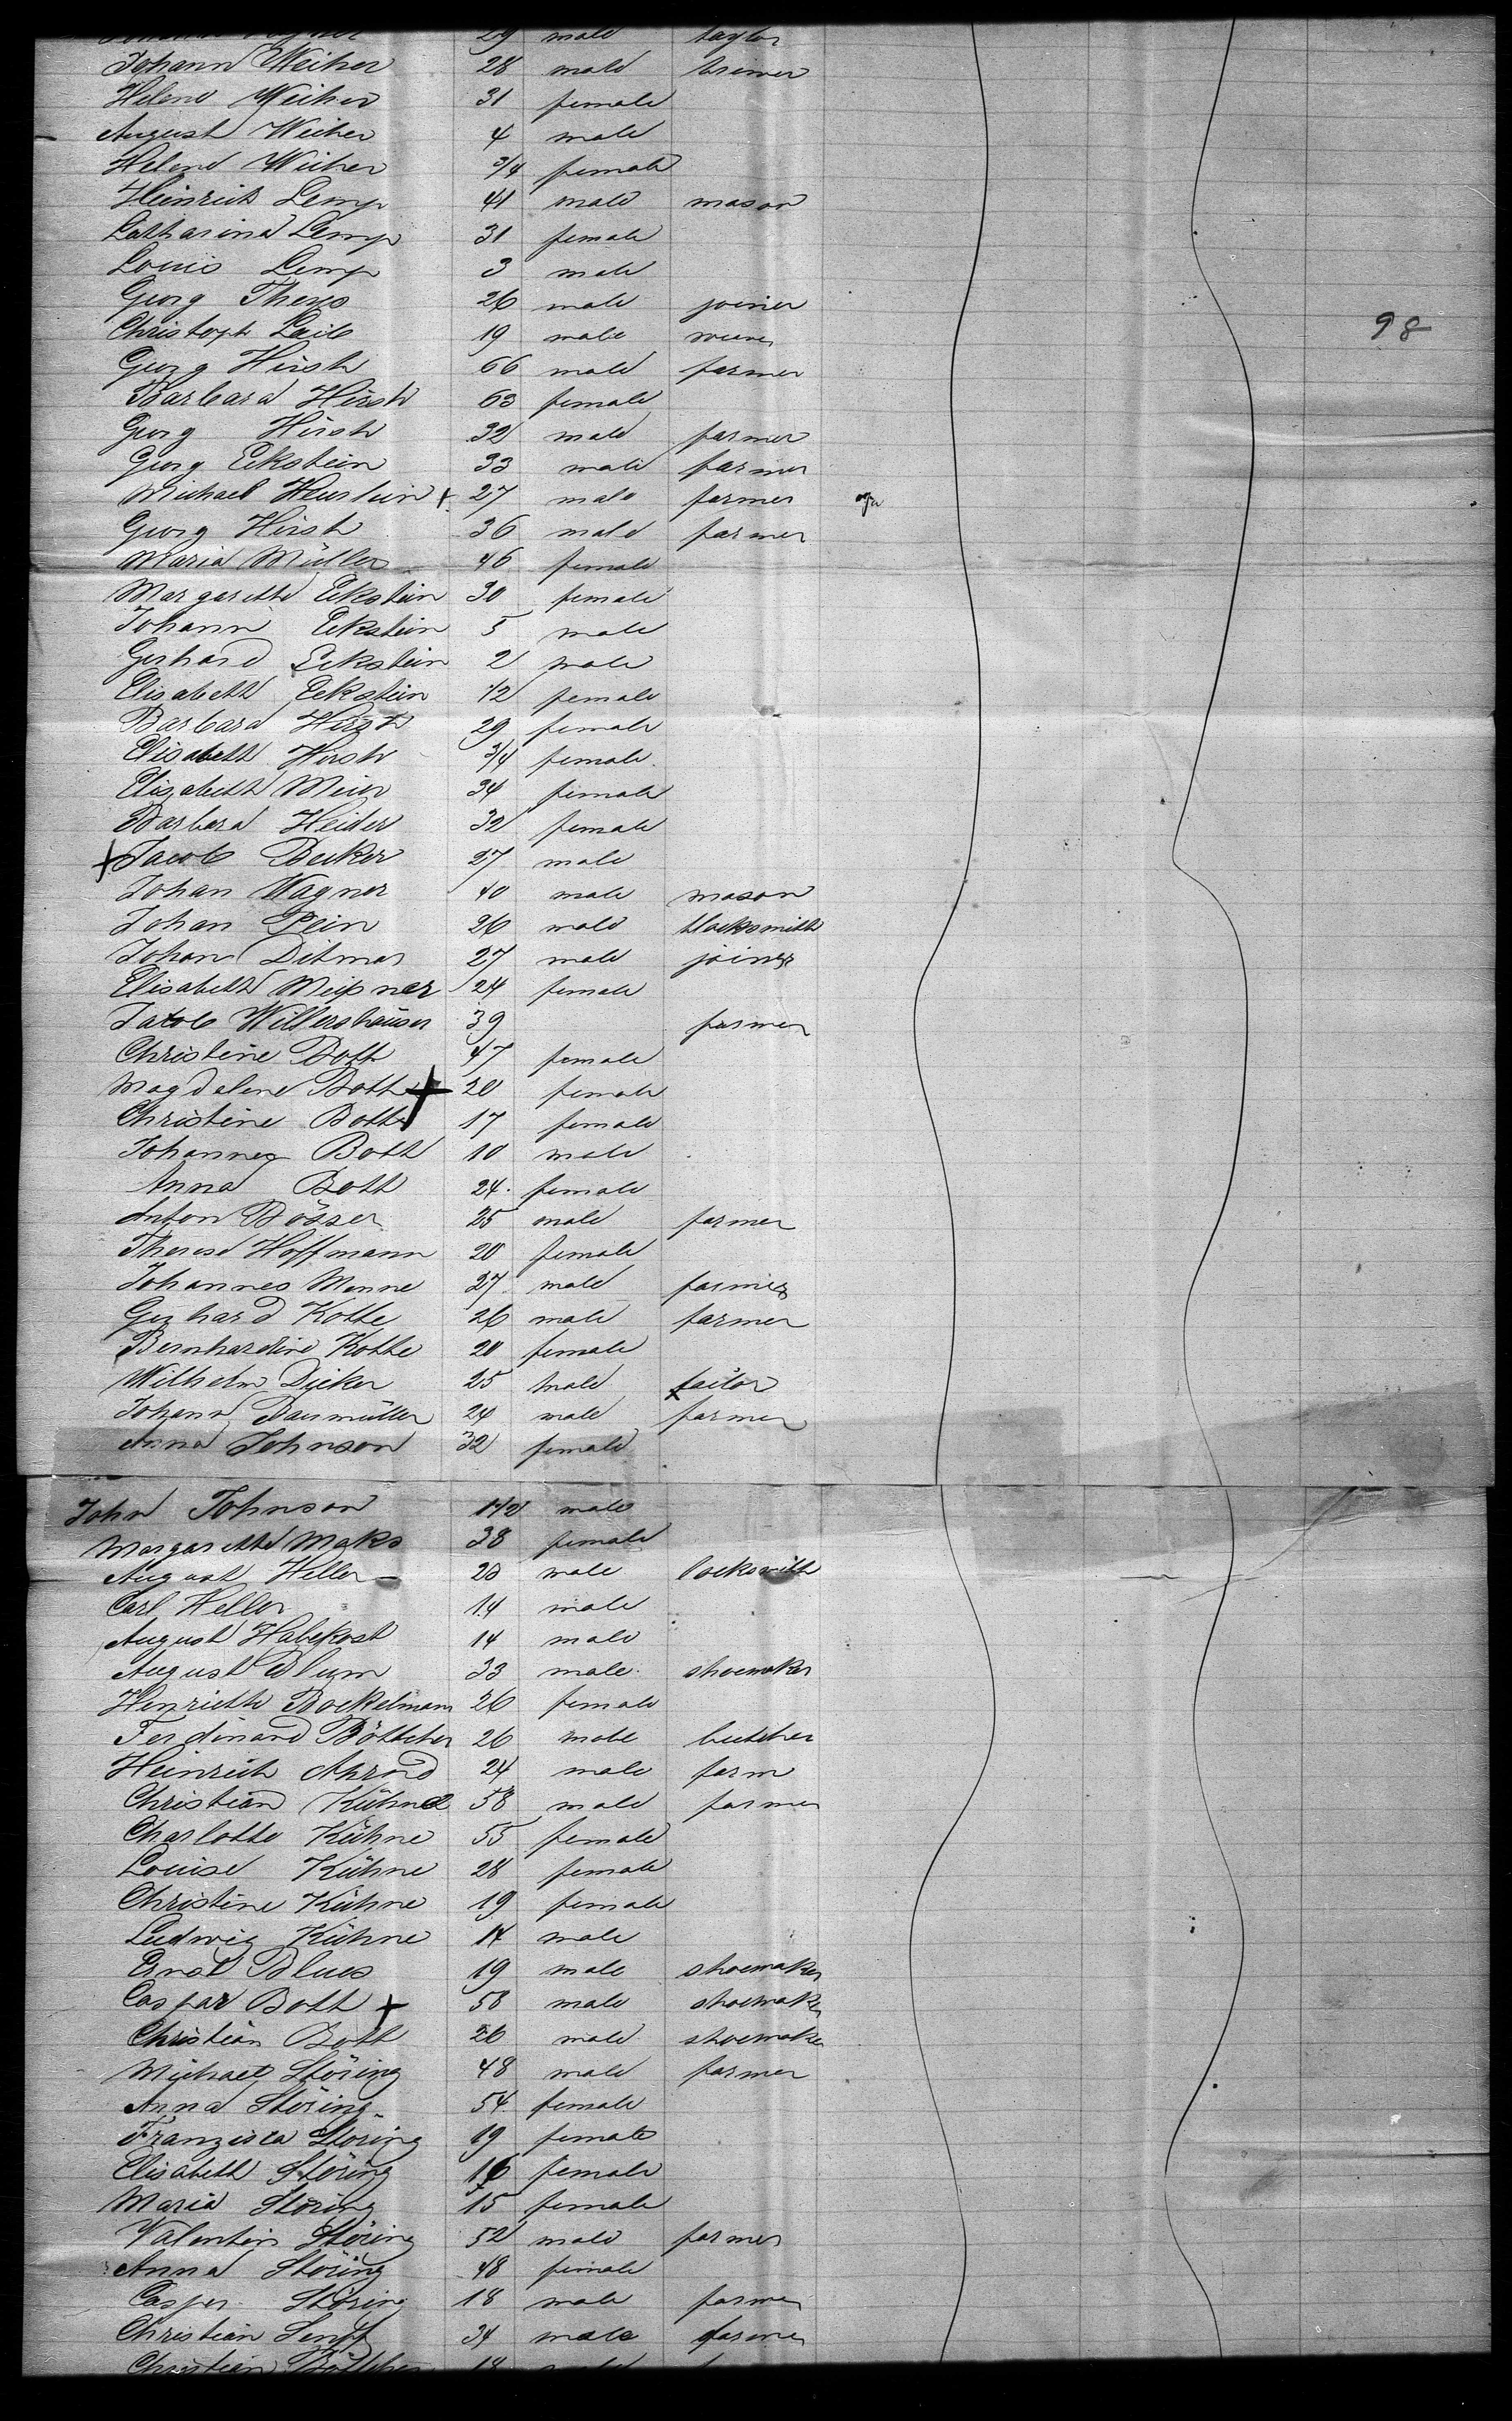 29 male taylor
Johann Weiher 28 male
Helene Weiher 31 female
August Weiher 4 male
Helene Weiher 3/4 female
Heinrich Lemp 41 male mason
Catharina Lemp 31 female
Louis Lemp 3 male
Georg Theys 26 male joiner
Christoph Laib 19 male
98
Georg Hirsh 66 male farmer
Barbara Hirsh 63 female
Georg Hirsh 32 male farmer
Georg Eckstein 33 male farmer
Michael Heuslein + 27 male farmer
Georg Hirsh 36 male farmer
Maria Müller 46 female
Margarethe Eckstein 30 female
Johann Eckstein 5 male
Gerhard Eckstein 2 male
Elisabeth Eckstein 1/2 female
Barbara Hirsh 29 female
Elisabeth Hirsh 3/4 female
Elisabeth Meier 34 female
Barbara Heider 32 female
+ Jacob Becker 27 male
Johan Wagner 40 male mason
Johan Pein 26 male blacksmith
Johan Ditmar 27 male joiner
Elisabeth Meißner 24 female
Jacob Willershäuser 39 farmer
Christine Both 47 female
Magdalene Both + 20 female
Christine Both 17 female
Johannes Both 10 male
Anna Both 24 female
Anton Bösser 25 male farmer
Therese Hoffmann 20 female
Johannes Manne 27 male farmer
Gerhard Kotte 26 male farmer
Bernhardine Kotte 20 female
Wilhelm Dicker 25 male tailor
Johann Baumüller 24 male farmer
Anna Johnson 32 female
John Johnson 1 1/2 male
Margarethe Maks 38 female
August Heller 20 male locksmith
Carl Heller 14 male
August Habekost 14 male
August Blum 33 male shoemaker
Henriette Bockelmann 26 female
Ferdinand Böttcher 26 male butcher
Heinrich Ahrend 24 male farm
Christian Kühne 58 male farmer
Charlotte Kühne 55 female
Louise Kühne 28 female
Christine Kühne 19 female
Ludwig Kühne 14 male
Ernst Blues 19 male shoemaker
Caspar Both + 58 male shoemaker
Christian Both 26 male shoemaker
Michael Störing 48 male farmer
Anna Störing 54 female
Franzisca Storing 19 female
Elisabeth Störing 16 female
Maria Störing 15 female
Valentin Störing 52 male farmer
Anna Störing 48 female
Casper Störing 18 male farmer
Christian Senff 34 male farmer
Christian Böttcher 18 male